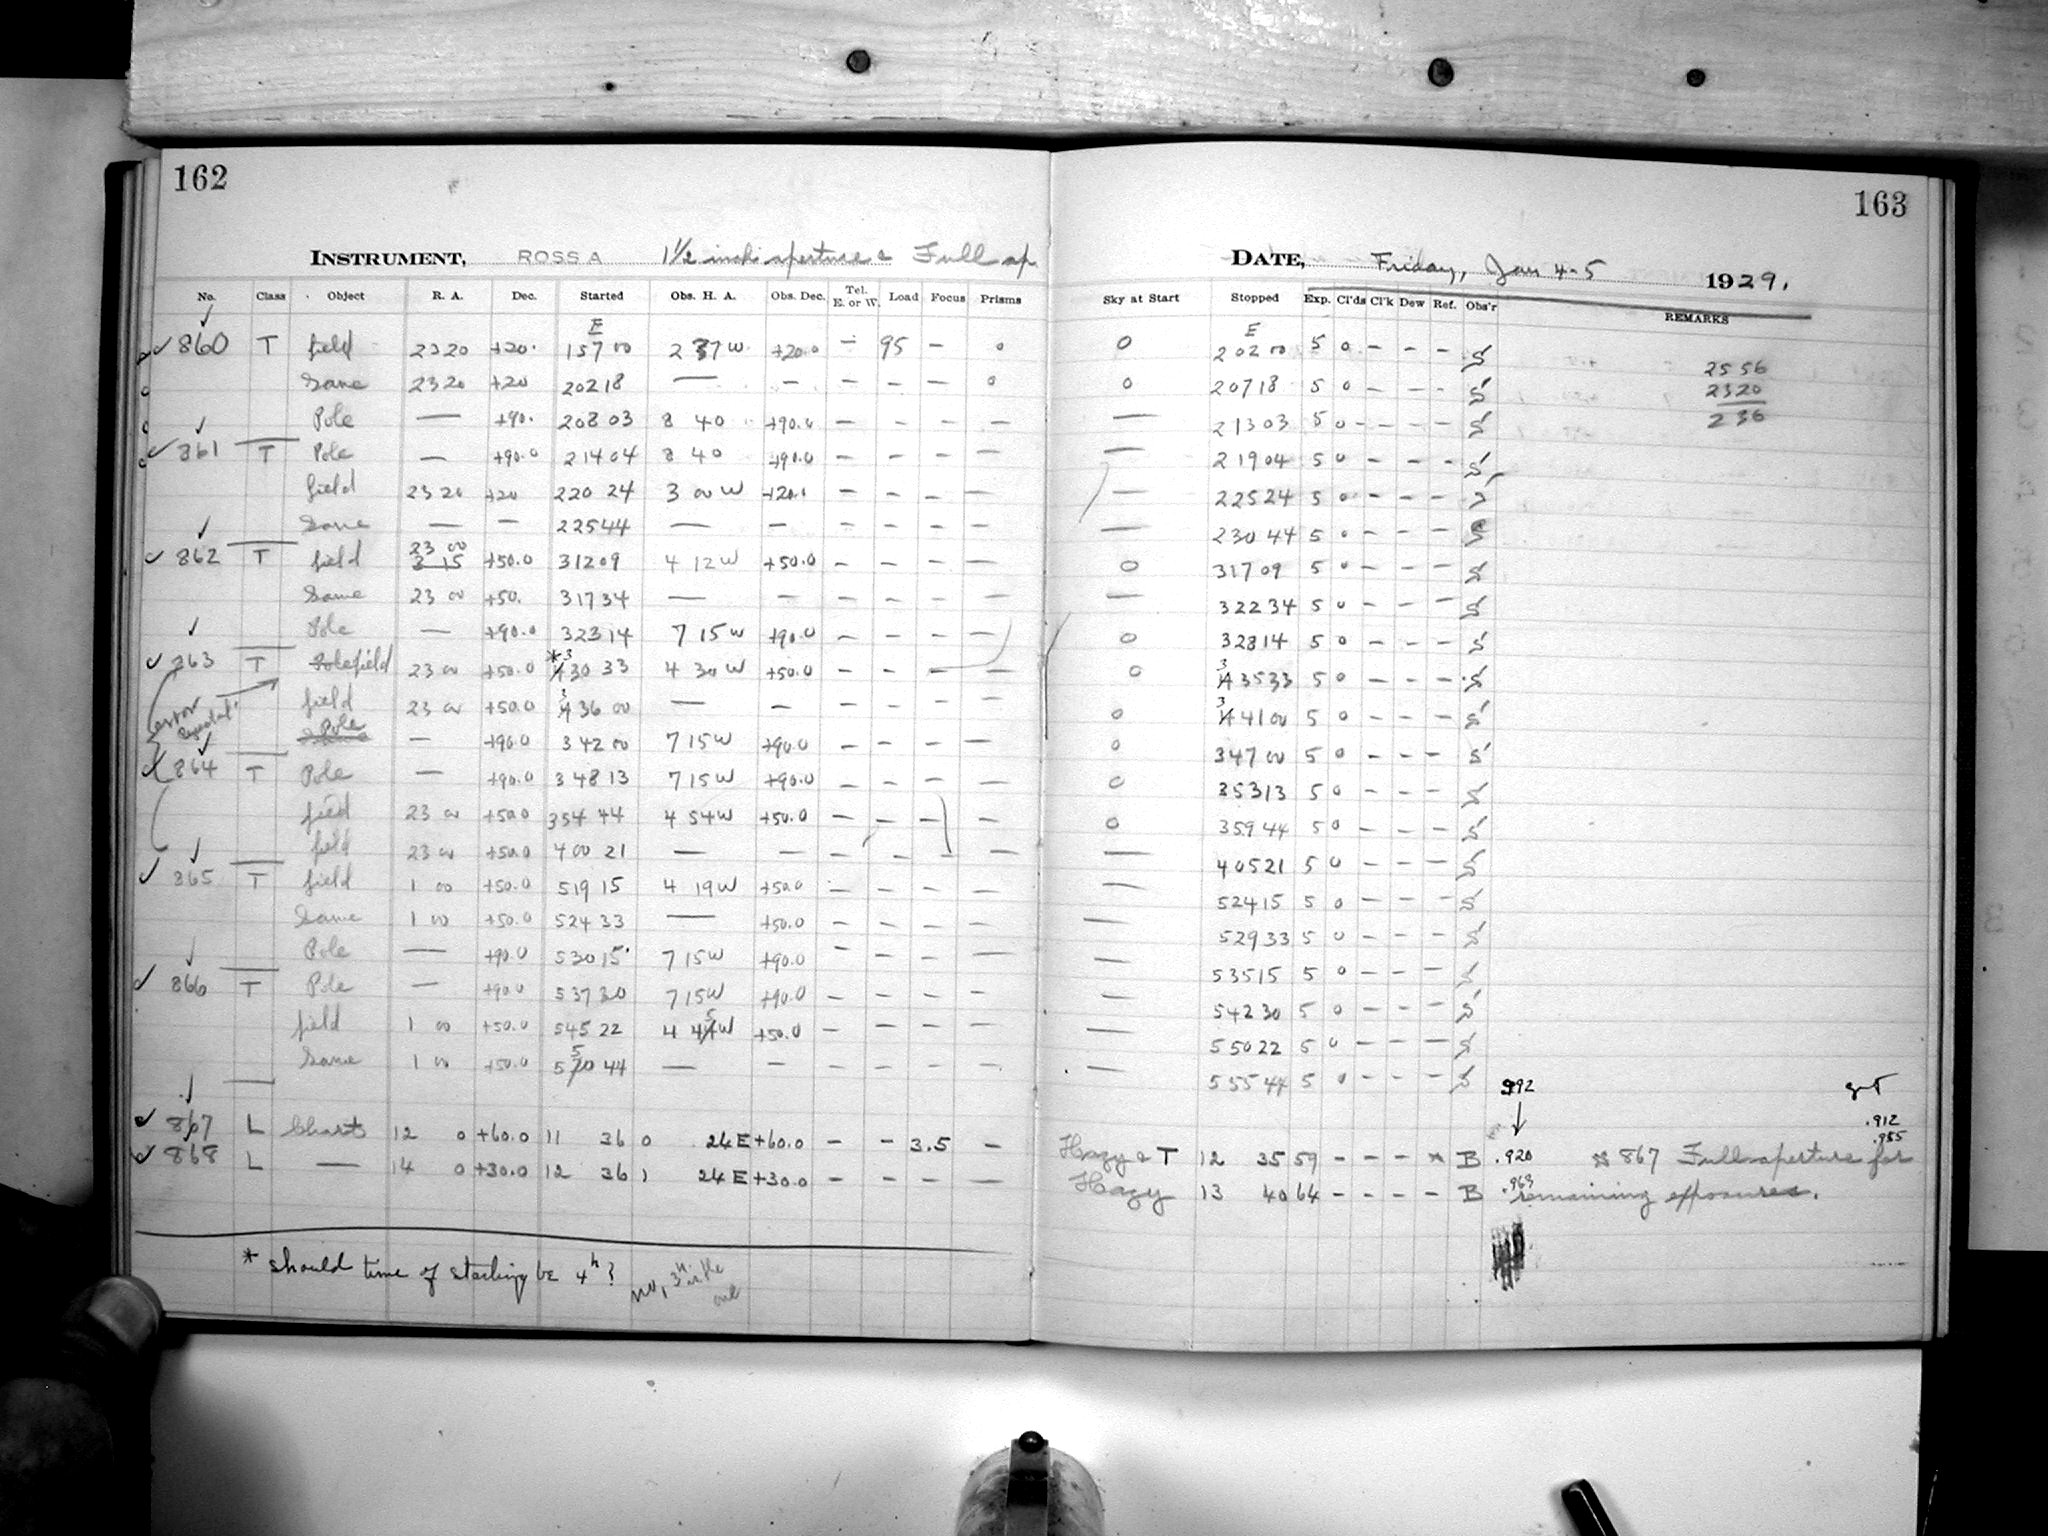 162
163
INSTRUMENT, ROSS A 1½ inch aperture & Full ap.
DATE, Friday, Jan 4-5 1929.
No. Class Object R. A. Dec. Started Obs. H. A. Obs. Dec. Tel. E. or W. Load Focus Prisms Sky at Start Stopped Exp. Cl'ds Cl'k Dew Ref. Obs'r REMARKS
E E
860 T field 23 20 +20. 1 57 00 2 37 W +20.0 — 95 — 0 0 2 02 00 5 0 — — — S 25 56
Same 23 20 +20 2 02 18 — — — — — 0 0 2 07 18 5 0 — — — S 23 20
Pole — +90. 2 08 03 8 40 +90.0 — — — — — 2 13 03 5 0 — — — S 2 36
861 T Pole — +90.0 2 14 04 8 40 +90.0 — — — — — 2 19 04 5 0 — — — S
field 23 20 +20 2 20 24 3 00 W +20. — — — — — 2 25 24 5 0 — — — S
Same — — 2 25 44 — — — — — — — 2 30 44 5 0 — — — S
23 00
862 T field 3 15 +50.0 3 12 09 4 12 W +50.0 — — — — 0 3 17 09 5 0 — — — S
Same 23 00 +50. 3 17 34 — — — — — — — 3 22 34 5 0 — — — S
Pole — +90.0 3 23 14 7 15 W +90.0 — — — — 0 3 28 14 5 0 — — — S
* 3 3
863 T Pole field 23 00 +50.0 4 30 33 4 30 W +50.0 — — — — 0 4 35 33 5 0 — — — S
error
3 3
field 23 00 +50.0 4 36 00 — — — — — — 0 4 41 00 5 0 — — — S
Pole — +90.0 3 42 00 7 15 W +90.0 — — — — 0 3 47 00 5 0 — — — S
864 T Pole — +90.0 3 48 13 7 15 W +90.0 — — — — 0 3 53 13 5 0 — — — S
field 23 00 +50.0 3 54 44 4 54 W +50.0 — — — — 0 3 59 44 5 0 — — — S
field 23 00 +50.0 4 00 21 — — — — — — — 4 05 21 5 0 — — — S
865 T field 1 00 +50.0 5 19 15 4 19 W +50.0 — — — — — 5 24 15 5 0 — — — S
Same 1 00 +50.0 5 24 33 — +50.0 — — — — — 5 29 33 5 0 — — — S
Pole — +90.0 5 30 15 7 15 W +90.0 — — — — — 5 35 15 5 0 — — — S
866 T Pole — +90.0 5 37 30 7 15 W +90.0 — — — — — 5 42 30 5 0 — — — S
field 1 00 +50.0 5 45 22 4 45 W +50.0 — — — — — 5 50 22 5 0 — — — S
Same 1 00 +50.0 5 50 44 — — — — — — — 5 55 44 5 0 — — — S
992
.912
.955
867 L Charts 12 0 +60.0 11 36 0 24 E +60.0 — — 3.5 — Hazy & T 12 35 59 — — — * B .920 * 867 Full aperture for
868 L — 14 0 +30.0 12 36 1 24 E +30.0 — — — — Hazy 13 40 64 — — — — B .963 remaining exposures.
* should time of starting be 4h? no, 3h is the one